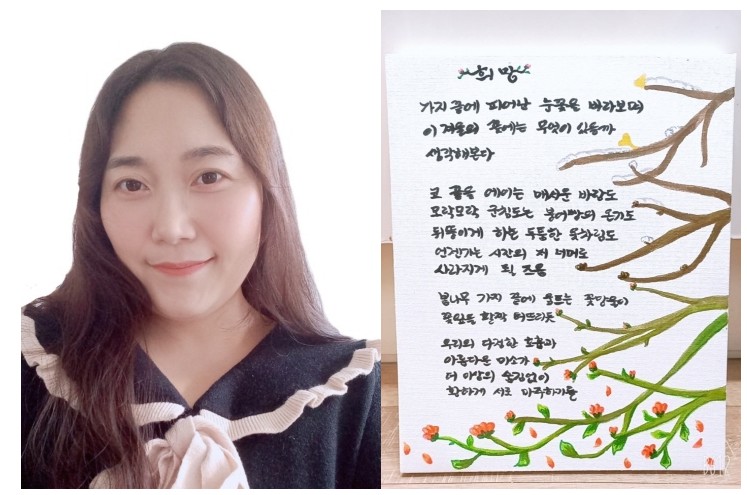 희망
가지 끝에 피어난 눈꽃을 바라보며
이 겨울의 끝에는 무엇이 있을까
생각해본다
코 끝을 에이는 매서운 바람도
모락모락 군침도는 붕어빵의 온기도
뒤뚱이게 하는 두툼한 옷차림도
언젠가는 시간의 저 너머로
사라지게 될 즈음
봄나무 가지 끝에 움트는 꽃망울이
꽃잎을 활짝 터뜨리듯
우리의 다정한 호흡과
아름다운 미소가
더 이상의 숨김없이
환하게 서로 마주하기를